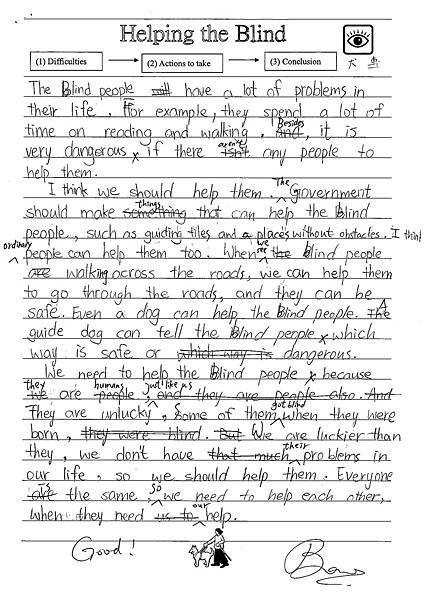 Helping the Blind
(1) Difficulties (2) Actions to take (3) Conclusion
The Blind people will have a lot of problems in
their life. For example, they spend a lot of
time on reading and walking. Besides
And, it is
aren't
very dangerous if there isn't any people to
help them.
I think we should help them. The Government
things
should make something that can help the Blind
people, such as guiding tiles and a places without obstacles. I think
ordinary
people can help them too. When we see the Blind people
are walking across the roads, we can help them
to go through the roads, and they can be
safe. Even a dog can help the Blind people. The A
guide dog can tell the Blind people which
way is safe or which way is dangerous.
We need to help the Blind people because
they humans just like us
we are people, and they are people also. And
They are unlucky, some of them got blind when they were
born, they were blind. But We are luckier than
they, we don't have that much their problems in
our life, so we should help them. Everyone
is so
are the same, we need to help each other,
when they need us to our help.
Good!